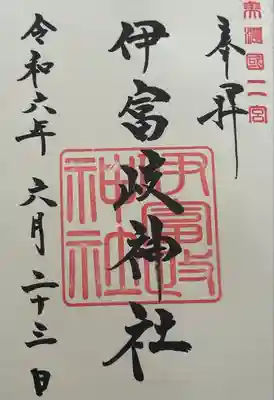 美濃國二宮
奉拝
伊富岐神社
伊富岐神社
令和六年 六月 二十三日